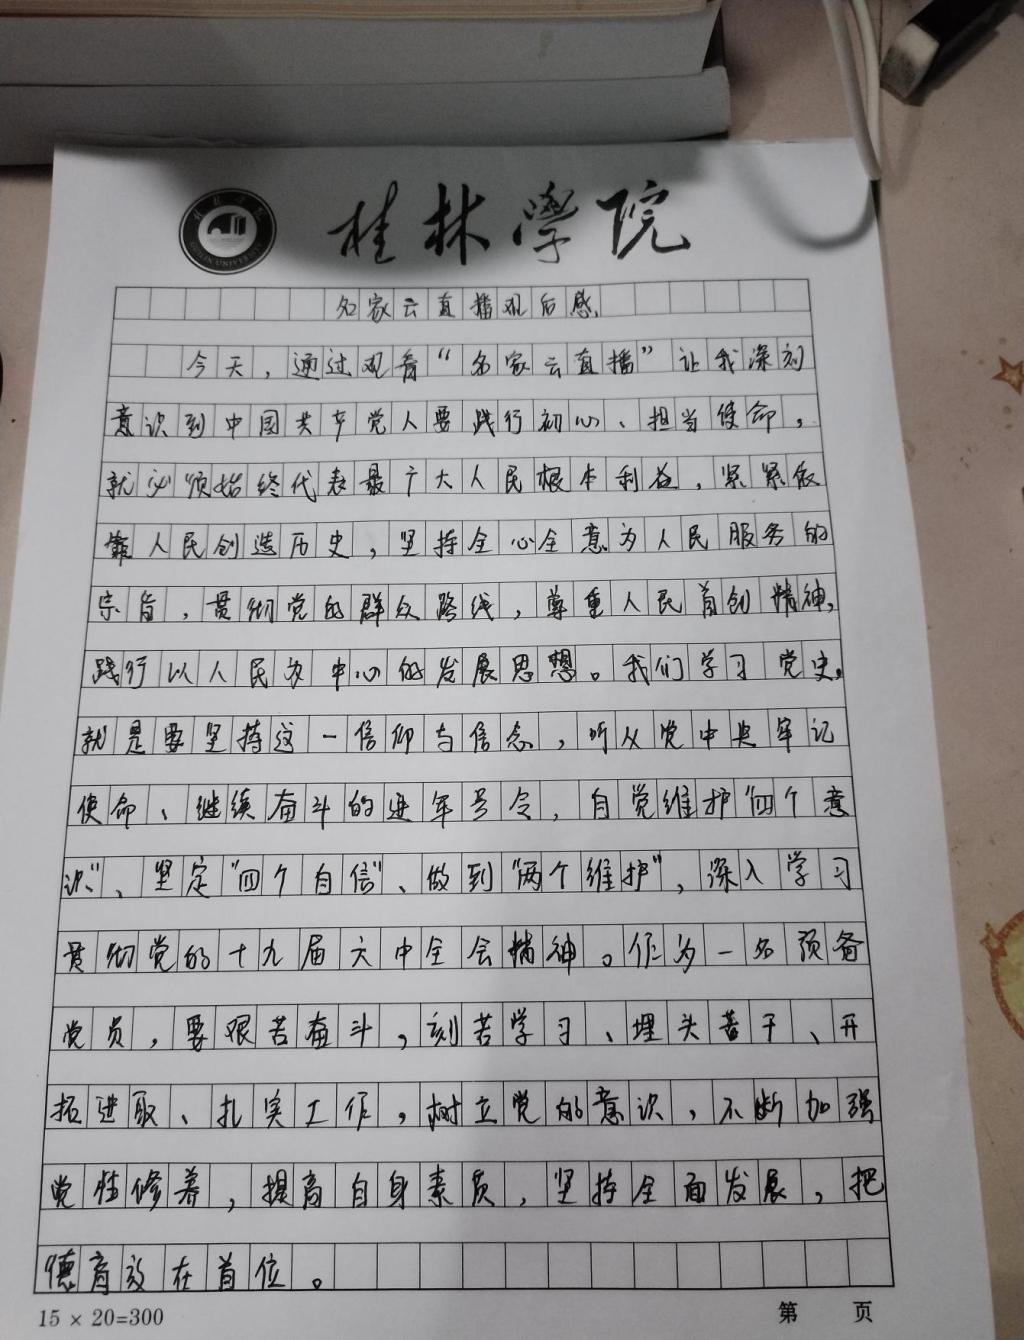 桂林學院
GUILIN UNIVERSITY
名家云直播观后感
今天，通过观看“名家云直播”让我深刻
意识到中国共产党人要践行初心、担当使命，
就必须始终代表最广大人民根本利益，紧紧依
靠人民创造历史，坚持全心全意为人民服务的
宗旨，贯彻党的群众路线，尊重人民首创精神，
践行以人民为中心的发展思想。我们学习党史，
就是要坚持这一信仰与信念，听从党中央牢记
使命、继续奋斗的进军号令，自觉维护“四个意
识”、坚定“四个自信”、做到“两个维护”，深入学习
贯彻党的十九届六中全会精神。作为一名预备
党员，要艰苦奋斗，刻苦学习、埋头苦干、开
拓进取、扎实工作，树立党的意识，不断加强
党性修养，提高自身素质，坚持全面发展，把
德育放在首位。
15 × 20=300
第 页